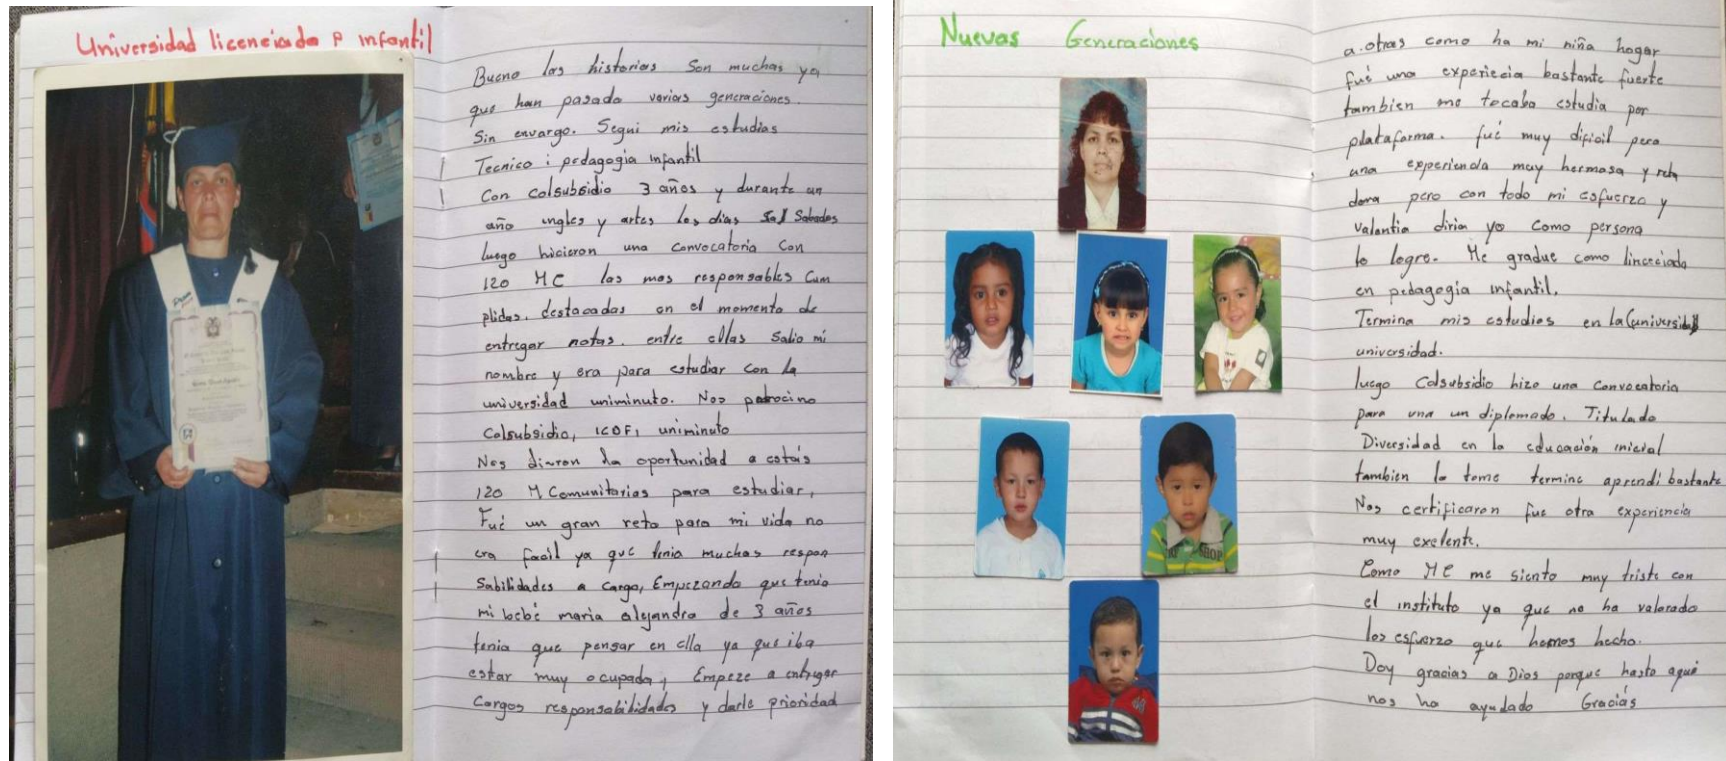 Universidad licenciada p infantil
Bueno las historias son muchas ya
que han pasado varias generaciones.
Sin envargo. Segui mis estudios
Tecnico i pedagogia infantil
Con colsubsidio 3 años y durante un
año ingles y artes los dias Sal Sabados
luego hicieron una convocatoria con
120 MC las mas responsables Cum
plidas, destacadas en el momento de
entregar notas. entre ellas Salio mi
nombre y era para estudiar con la
universidad uniminuto. Nos patrocino
Colsubsidio, ICBF, uniminuto
Nos dieron la oportunidad a estas
120 M Comunitarias para estudiar,
Fué un gran reto para mi vida no
era facil ya que tenia muchas respon
Sabilidades a cargo, Empezando que tenia
mi bebé maria alejandra de 3 años
tenia que pensar en ella ya que iba
estar muy ocupada, Empeze a entregar
Cargos responsabilidades y darle prioridad
Nuevas Generaciones
a otras como ha mi niña hogar
fué una experiecia bastante fuerte
tambien me tocaba estudia por
plataforma. fué muy dificil pero
una experiencia muy hermosa y reta
dora pero con todo mi esfuerzo y
valantia diria yo como persona
lo logre. Me gradue como linceciada
en pedagogia infantil.
Termina mis estudios en la (universidad
universidad.
luego Colsubsidio hizo una convocatoria
para una un diplomado. Titulado
Diversidad en la educación inicial
tambien lo tome termine aprendi bastante
Nos certificaron fue otra experiencia
muy exelente.
Como MC me siento muy triste con
el instituto ya que no ha valorado
los esfuerzo que hemos hecho.
Doy gracias a Dios porque hasta aqui
nos ha ayudado Gracias